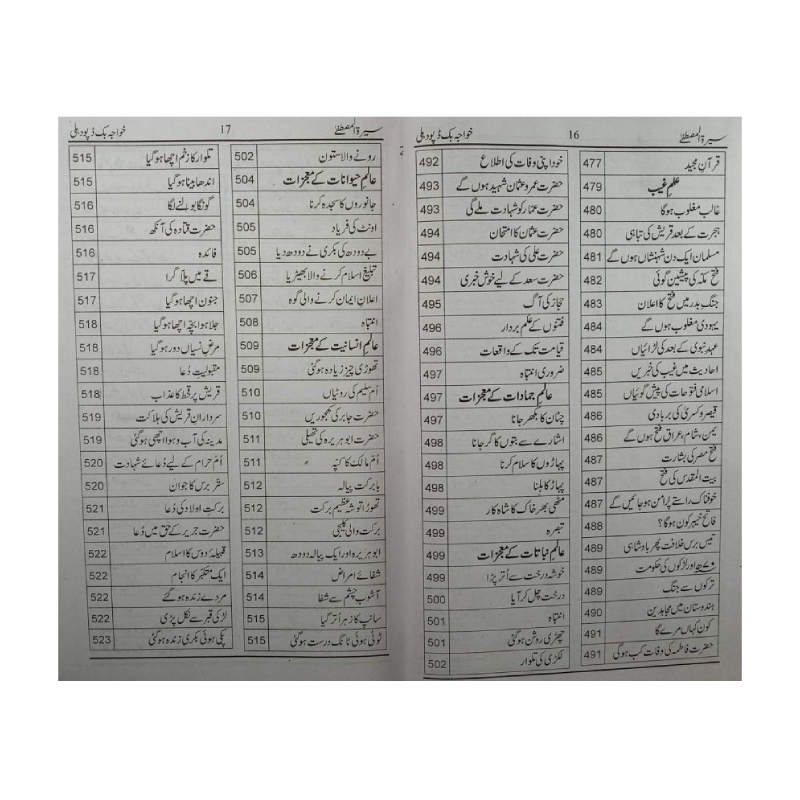 سیرۃ المصطفیٰ 16 خواجہ بک ڈپو دہلی
قرآن مجید 477
علم غیب 479
غالب مغلوب ہوگا 480
ہجرت کے بعد قریش کی تباہی 480
مسلمان ایک دن شہنشاہ ہوں گے 481
فتح مکہ کی پیشین گوئی 482
جنگ بدر میں فتح کا اعلان 483
یہودی مغلوب ہوں گے 484
عہد نبوی کے بعد کی لڑائیاں 484
احادیث میں غیب کی خبریں 485
اسلامی فتوحات کی پیش گوئیاں 485
قیصر و کسریٰ کی بربادی 486
یمن، شام، عراق فتح ہوں گے 486
فتح مصر کی بشارت 487
بیت المقدس کی فتح 487
خوفناک راستے پُر امن ہو جائیں گے 487
فاتح خیبر کون ہوگا؟ 488
تیس برس خلافت پھر بادشاہی 489
۷۰ھ اور لڑکوں کی حکومت 489
ترکوں سے جنگ 489
ہندوستان میں مجاہدین 490
کون کہاں مرے گا 491
حضرت فاطمہ کی وفات کب ہوگی 491
خود اپنی وفات کی اطلاع 492
حضرت عمر و عثمان شہید ہوں گے 493
حضرت عمار کو شہادت ملے گی 493
حضرت عثمان کا امتحان 494
حضرت علی کی شہادت 494
حضرت سعد کے لیے خوش خبری 494
حجاز کی آگ 495
فتنوں کے علم بردار 496
قیامت تک کے واقعات 496
ضروری انتباہ 497
عالم جمادات کے معجزات 497
چٹان کا بکھر جانا 497
اشارے سے بتوں کا گر جانا 498
پہاڑوں کا سلام کرنا 498
پہاڑ کا ہلنا 498
مٹھی بھر خاک کا شاہ کار 499
تبصرہ 499
عالم نباتات کے معجزات 499
خوشہ درخت سے اُتر پڑا 499
درخت چل کر آیا 500
انتباہ 501
چھڑی روشن ہوگئی 501
لکڑی کی تلوار 502
سیرۃ المصطفیٰ 17 خواجہ بک ڈپو دہلی
رونے والا ستون 502
عالم حیوانات کے معجزات 504
جانوروں کا سجدہ کرنا 504
اونٹ کی فریاد 505
بے دودھ کی بکری نے دودھ دیا 505
تبلیغ اسلام کرنے والا بھیڑیا 506
اعلان ایمان کرنے والی گوہ 507
انتباہ 508
عالم انسانیت کے معجزات 509
تھوڑی چیز زیادہ ہوگئی 509
اُم سلیم کی روٹیاں 510
حضرت جابر کی کھجوریں 510
حضرت ابوہریرہ کی تھیلی 511
اُم مالک کا کپہ 511
بابرکت پیالہ 512
تھوڑا توشہ عظیم برکت 512
برکت والی کلیجی 512
ابوہریرہ اور ایک پیالہ دودھ 513
شفائے امراض 514
آشوب چشم سے شفا 514
سانپ کا زہر اُتر گیا 514
ٹوٹی ہوئی ٹانگ درست ہوگئی 515
تلوار کا زخم اچھا ہوگیا 515
اندھا بینا ہوگیا 515
گونگا بولنے لگا 516
حضرت قتادہ کی آنکھ 516
فائدہ 516
قے میں پلّا گرا 517
جنون اچھا ہوگیا 517
جلا ہوا بچہ اچھا ہوگیا 518
مرض نسیاں دور ہوگیا 518
مقبولیت دُعا 518
قریش پر قحط کا عذاب 518
سرداران قریش کی ہلاکت 519
مدینہ کی آب و ہوا اچھی ہوگئی 519
اُم حرام کے لیے دُعائے شہادت 520
ستر برس کا جوان 520
برکت اولاد کی دُعا 521
حضرت جریر کے حق میں دُعا 521
قبیلہ دوس کا اسلام 522
ایک متکبر کا انجام 522
مردے زندہ ہوگئے 522
لڑکی قبر سے نکل پڑی 522
پکی ہوئی بکری زندہ ہوگئی 523